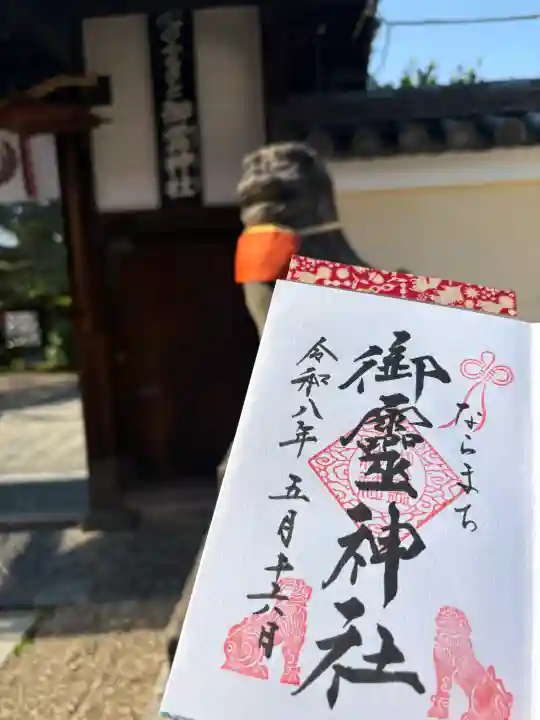 ならまち御霊神社
ならまち
御靈神社
令和八年 五月十六日